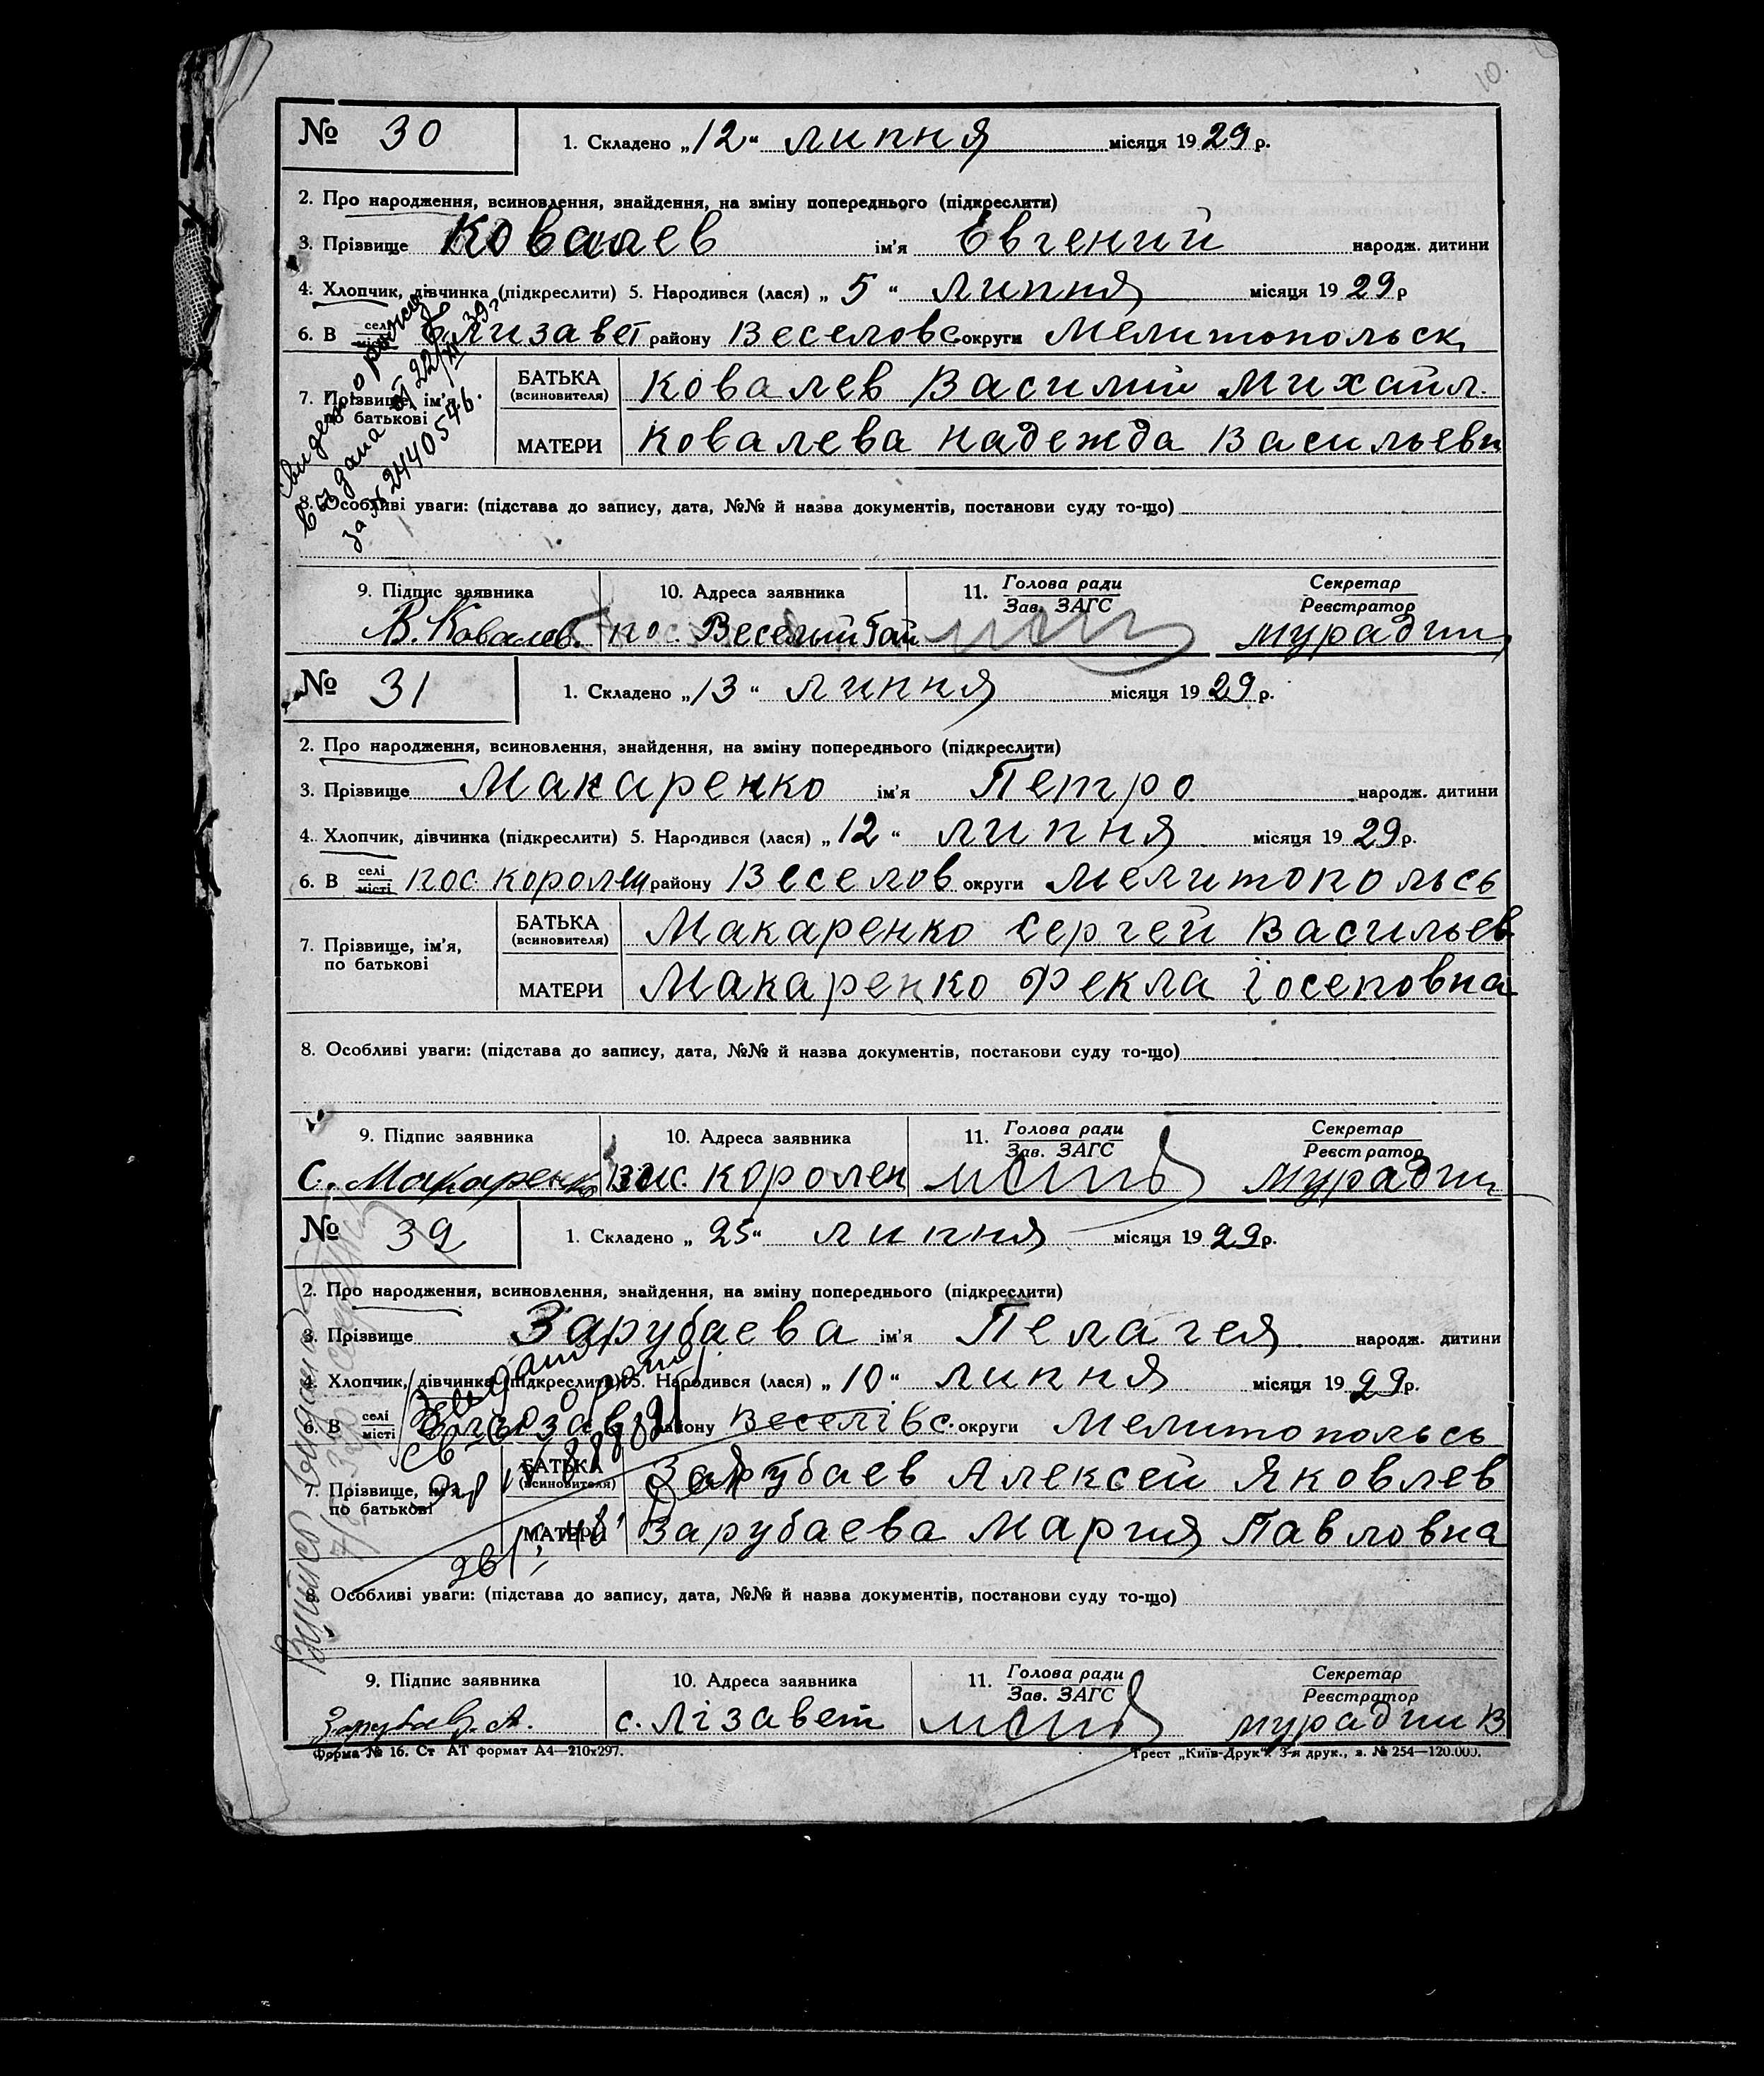 10.
№ 30
1. Складено „12“ липня місяця 1929 р.
2. Про народження, всиновлення, знайдення, на зміну попереднього (підкреслити)
3. Прізвище Ковалев ім'я Евгений народж. дитини
4. Хлопчик, дівчинка (підкреслити) 5. Народився (лася) „5“ липня місяця 1929 р
6. В селі місті Елизавет району Веселовс округи Мелитопольск
7. Прізвище, ім'я, по батькові
БАТЬКА (всиновителя) Ковалев Василий Михайл.
МАТЕРИ Ковалева Надежда Васильевн
8. Особливі уваги: (підстава до запису, дата, №№ й назва документів, постанови суду то-що)
за № 2440546.
9. Підпис заявника 10. Адреса заявника 11. Голова ради Зав. ЗАГС Секретар Реєстратор
В. Ковалев. пос. Веселий Гай
№ 31
1. Складено „13“ липня місяця 1929 р.
2. Про народження, всиновлення, знайдення, на зміну попереднього (підкреслити)
3. Прізвище Макаренко ім'я Петро народж. дитини
4. Хлопчик, дівчинка (підкреслити) 5. Народився (лася) „12“ липня місяця 1929 р.
6. В селі місті пос. королен району Веселов округи Мелитопольсь
7. Прізвище, ім'я, по батькові
БАТЬКА (всиновителя) Макаренко Сергей Васильев
МАТЕРИ Макаренко Фекла Іосеповна
8. Особливі уваги: (підстава до запису, дата, №№ й назва документів, постанови суду то-що)
9. Підпис заявника 10. Адреса заявника 11. Голова ради Зав. ЗАГС Секретар Реєстратор
С. Макаренко королен
№ 32
1. Складено „25“ липня місяця 1929 р.
2. Про народження, всиновлення, знайдення, на зміну попереднього (підкреслити)
3. Прізвище Зарубаева ім'я Пелагея народж. дитини
4. Хлопчик, дівчинка (підкреслити) 5. Народився (лася) „10“ липня місяця 1929 р.
6. В селі місті району Веселівс. округи Мелитопольсь
7. Прізвище, ім'я, по батькові
БАТЬКА (всиновителя) Зарубаев Алексей Яковлев
МАТЕРИ Зарубаева Мария Павловна
8. Особливі уваги: (підстава до запису, дата, №№ й назва документів, постанови суду то-що)
9. Підпис заявника 10. Адреса заявника 11. Голова ради Зав. ЗАГС Секретар Реєстратор
с. Лізавет
Форма № 16. Ст АТ формат А4—210x297. Трест „Київ-Друк“. 3-я друк., з. № 254—120.000.